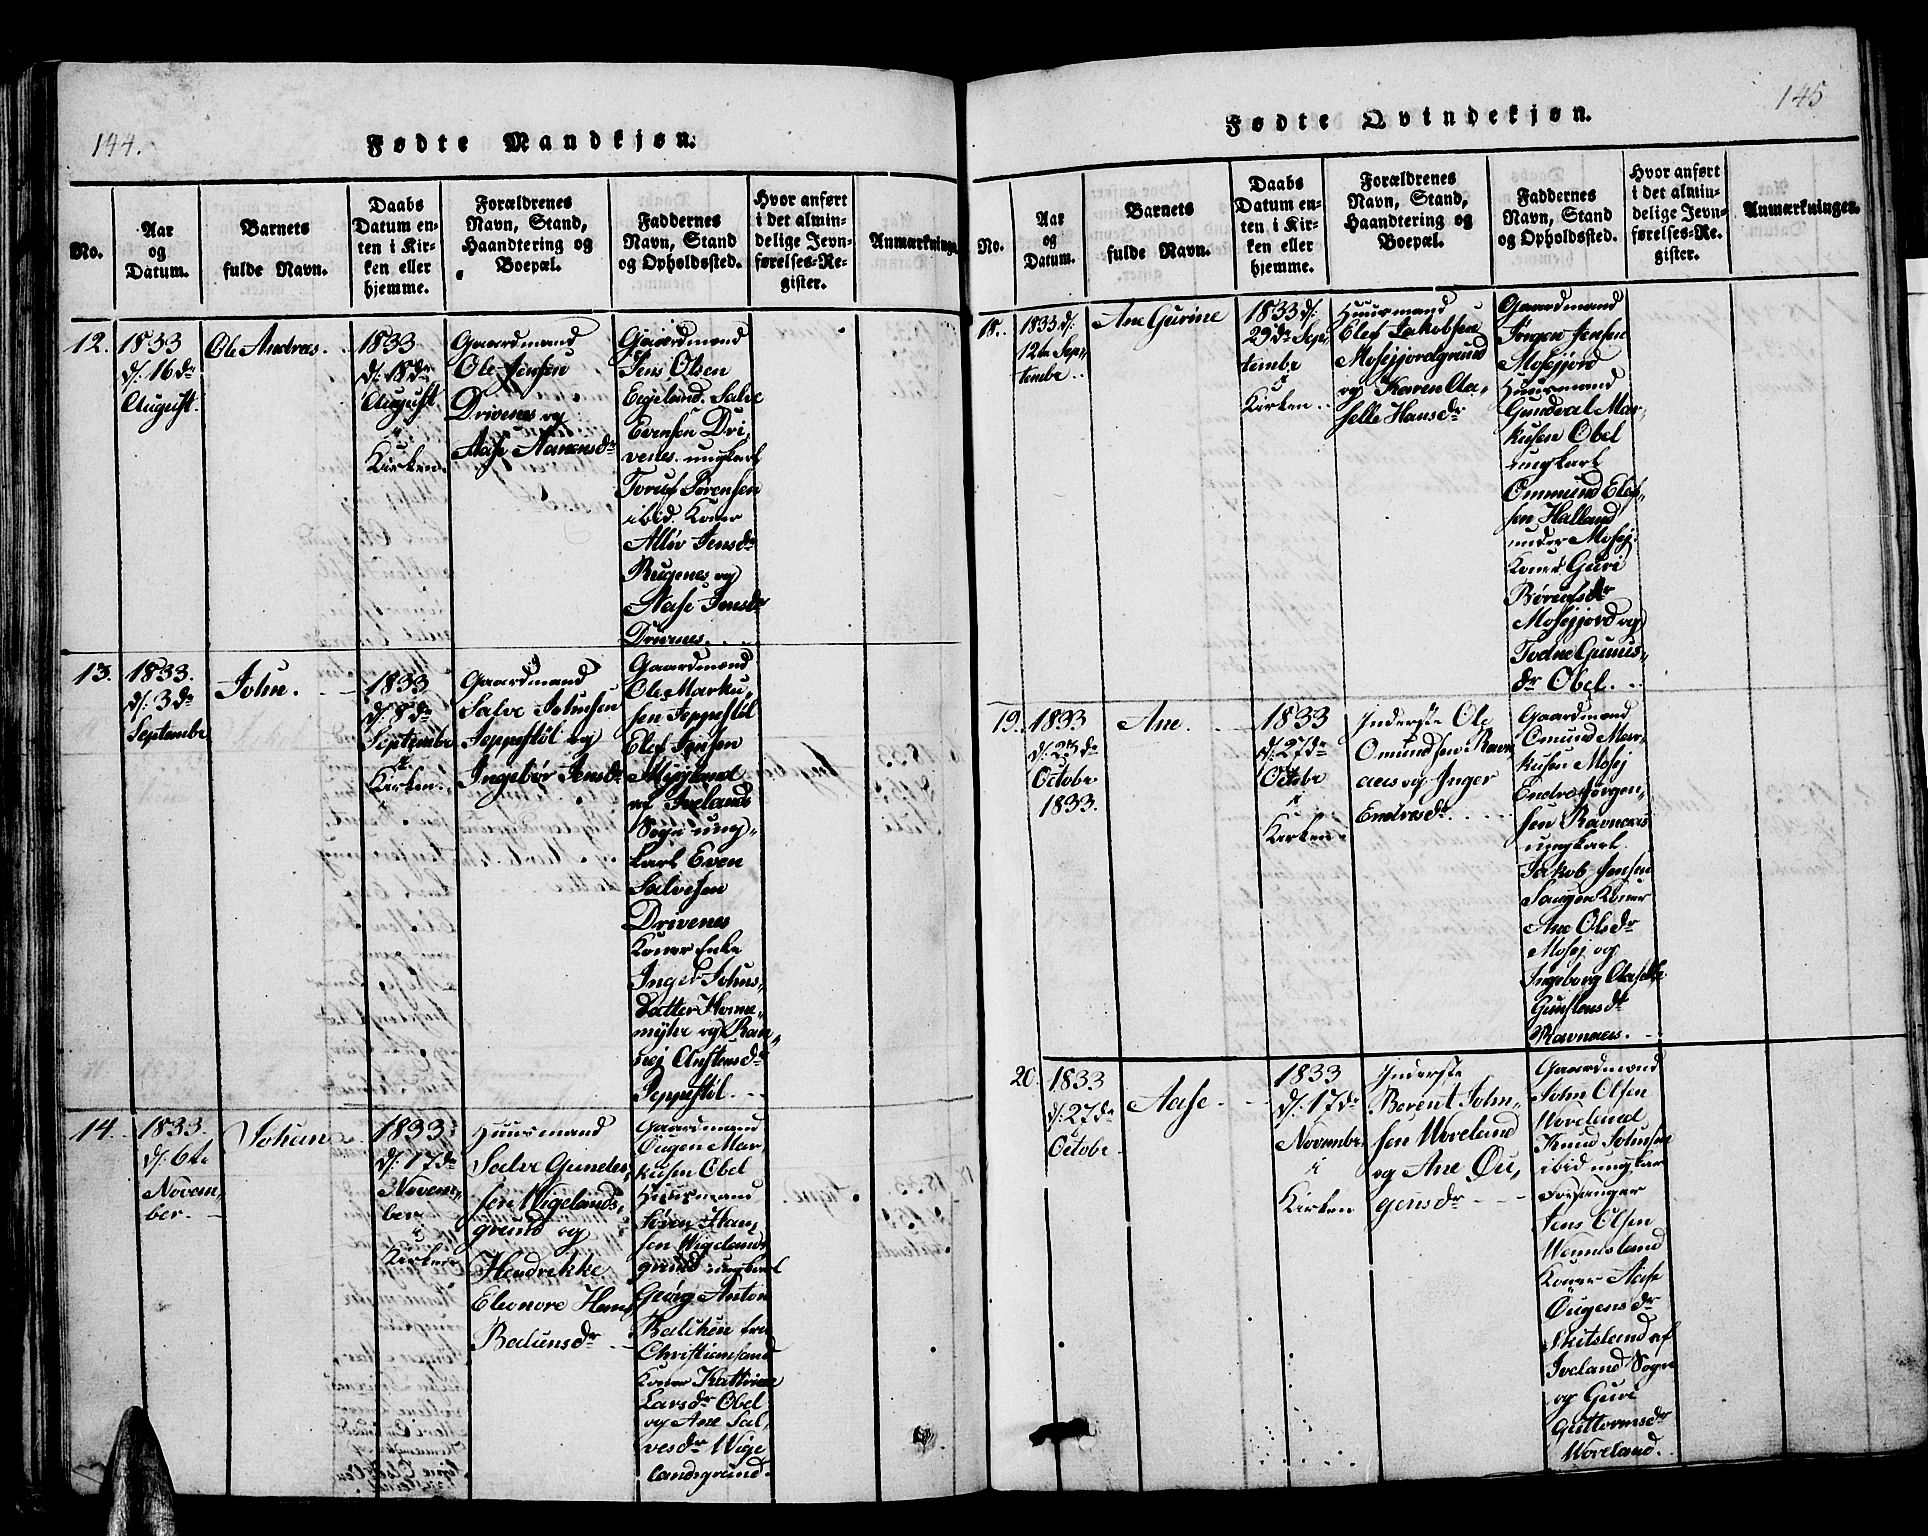 144.
Fødte Mandkjøn.
No.
Aar
og
Datum.
Barnets
fulde Navn.
Daabs
Datum en-
ten i Kir-
ken eller
hjemme.
Forældrenes
Navn, Stand,
Haandtering og
Boepæl.
Faddernes
Navn, Stand
og Opholdssted.
Hvor anført
i det almin-
delige Jevn-
førelses-Re-
gister.
Anmærkninge
12.
1833
d: 16de
August.
Ole Andreas.
1833
d: 18de
August
i
Kirken.
Gaardmand
Ole Jensen
Drivenes og
Aase Aanensdr
Gaardmænd
Jens Olsen
Eigeland. Salve
Evensen Dri,
venes. ungkarl
Toruf Sørensen
ibid. Koner
Allev Jensdr
Rugenes og
Aase Jensdr
Drivenes.
13.
1833.
d: 3de
Septembe
John.
1833
d: 8de
Septembe
i
Kirken.
Gaardmand
Salve Johnsen
Jeppestøl og
Ingebør Jensdr
Gaardmænd
Ole Marku,
sen Jeppestøl
Elef Jensen
Mygland
af Ivelands
Sogn ung,,
karl Even
Salvesen
Drivenes
Koner Enke
Inger Johns,
datter Home,,
myhr og Ran,,
nej Austensdr
Jeppestøl.
14.
1833.
d: 6te
Novem,
ber.
Johan
1833
d: 17de
Novem,
ber
i
Kirken
Huusmand
Salve Gunder,
sen Wigelands,
grund og
Hendrekke
Eleonore Hans
Balumsdr
Gaardmand
Øugen Mar
kusen Obel
Huusmand
Søren Han,
sen Wigelands
grund ungkarl
Geørg Anton
Balchen fra
Christiansand
Koner Kattrine
Larsdr Obel
og Ane Sal,
vesdr Wige
landsgrund.
145
Fødte Qvindekjøn.
No.
Aar
og
Datum.
Barnets
fulde Navn.
Daabs
Datum en-
ten i Kir-
ken eller
hjemme.
Forældrenes
Navn, Stand,
Haandtering og
Boepæl.
Faddernes
Navn, Stand
og Opholdssted.
Hvor anført
i det almin-
delige Jevn-
førelses-Re-
gister.
Anmærkninger.
18.
1833 d:
12te Sep,,
tembe.
Ane Gurine
1833 d:
29de Sep,
tembe
i
Kirken.
Huusmand
Elef Jakobsen
Mosejjordgrund
og Karen Ola,
selle Hansdr
Gaardmand
Jørgen Jensen
Mosejjord
Huusmand
Gundval Mar,
kusen Obel
ungkarl
Ommund Elef,,
sen Halland
under Mosej.
Koner Guri
Børensdr
Mosejjord og
Todne Gunus,,
dr Obel.
19.
1833
d: 23de
Octobe.
1833.
Ane.
1833
d: 27de
Octobe
i
Kirken.
Inderste Ole
Omundsen Ravn,
aas og Inger
Endresdr
Gaardmænd
Omund Mar,
kusen Mosej
Endre Jørgen,
sen Ravneaas
ungkarl
Jakob Jensen
Saugen Koner
Ane Olsdr
Mosej og
Ingeborg Olaselle
Gunstensdr
Ravnaas.
20.
1833
d: 27de
Octobe.
Aase.
1833
d: 17de
Novembe.
i
Kirken
Inderste
Berent John,
sen Woreland
og Ane Øu,
gensdr
Gaardmand
John Olsen
Woreland
Knud Johnsen
ibid ungkar
Forsanger
Jens Olsen
Wennesland
Koner Aase
Øugensdr
Skitsland af
Iveland Sogn
og Guri
Guttormsdr
Woreland.